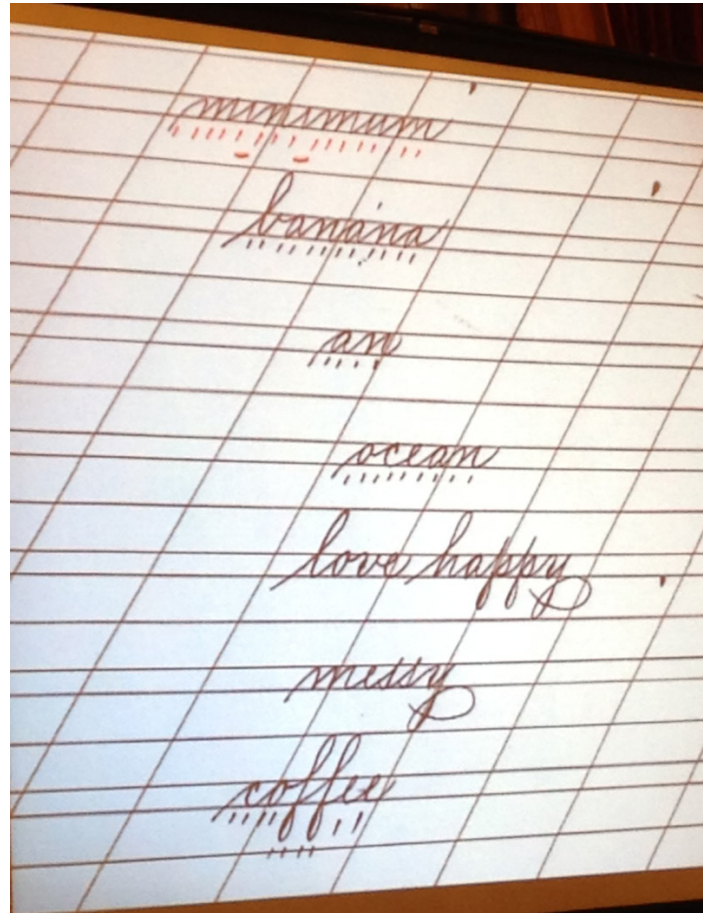 minimum
banana
an
ocean
love happy
messy
coffee